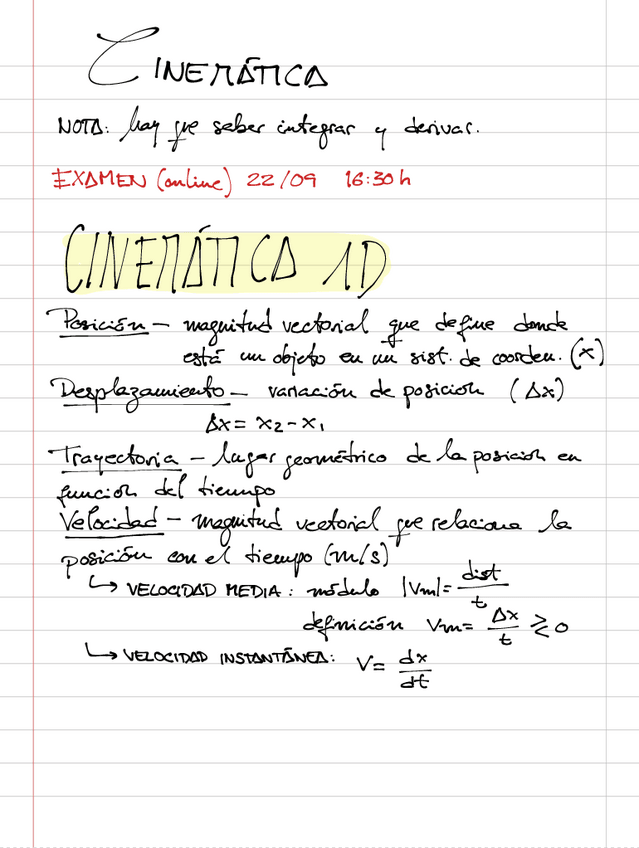 CINEMÁTICA
NOTA: hay que saber integrar y derivar.
EXAMEN (online) 22/09 16:30h
CINEMÁTICA 1D
Posición – magnitud vectorial que define donde
está un objeto en un sist. de coorden. (x)
Desplazamiento – variación de posición (Δx)
Δx = x₂ - x₁
Trayectoria – lugar geométrico de la posición en
función del tiempo
Velocidad – magnitud vectorial que relaciona la
posición con el tiempo (m/s)
↳ VELOCIDAD MEDIA: módulo |Vm| = dist/t
definición Vm = Δx/t ≷ 0
↳ VELOCIDAD INSTANTÁNEA: V = dx/dt